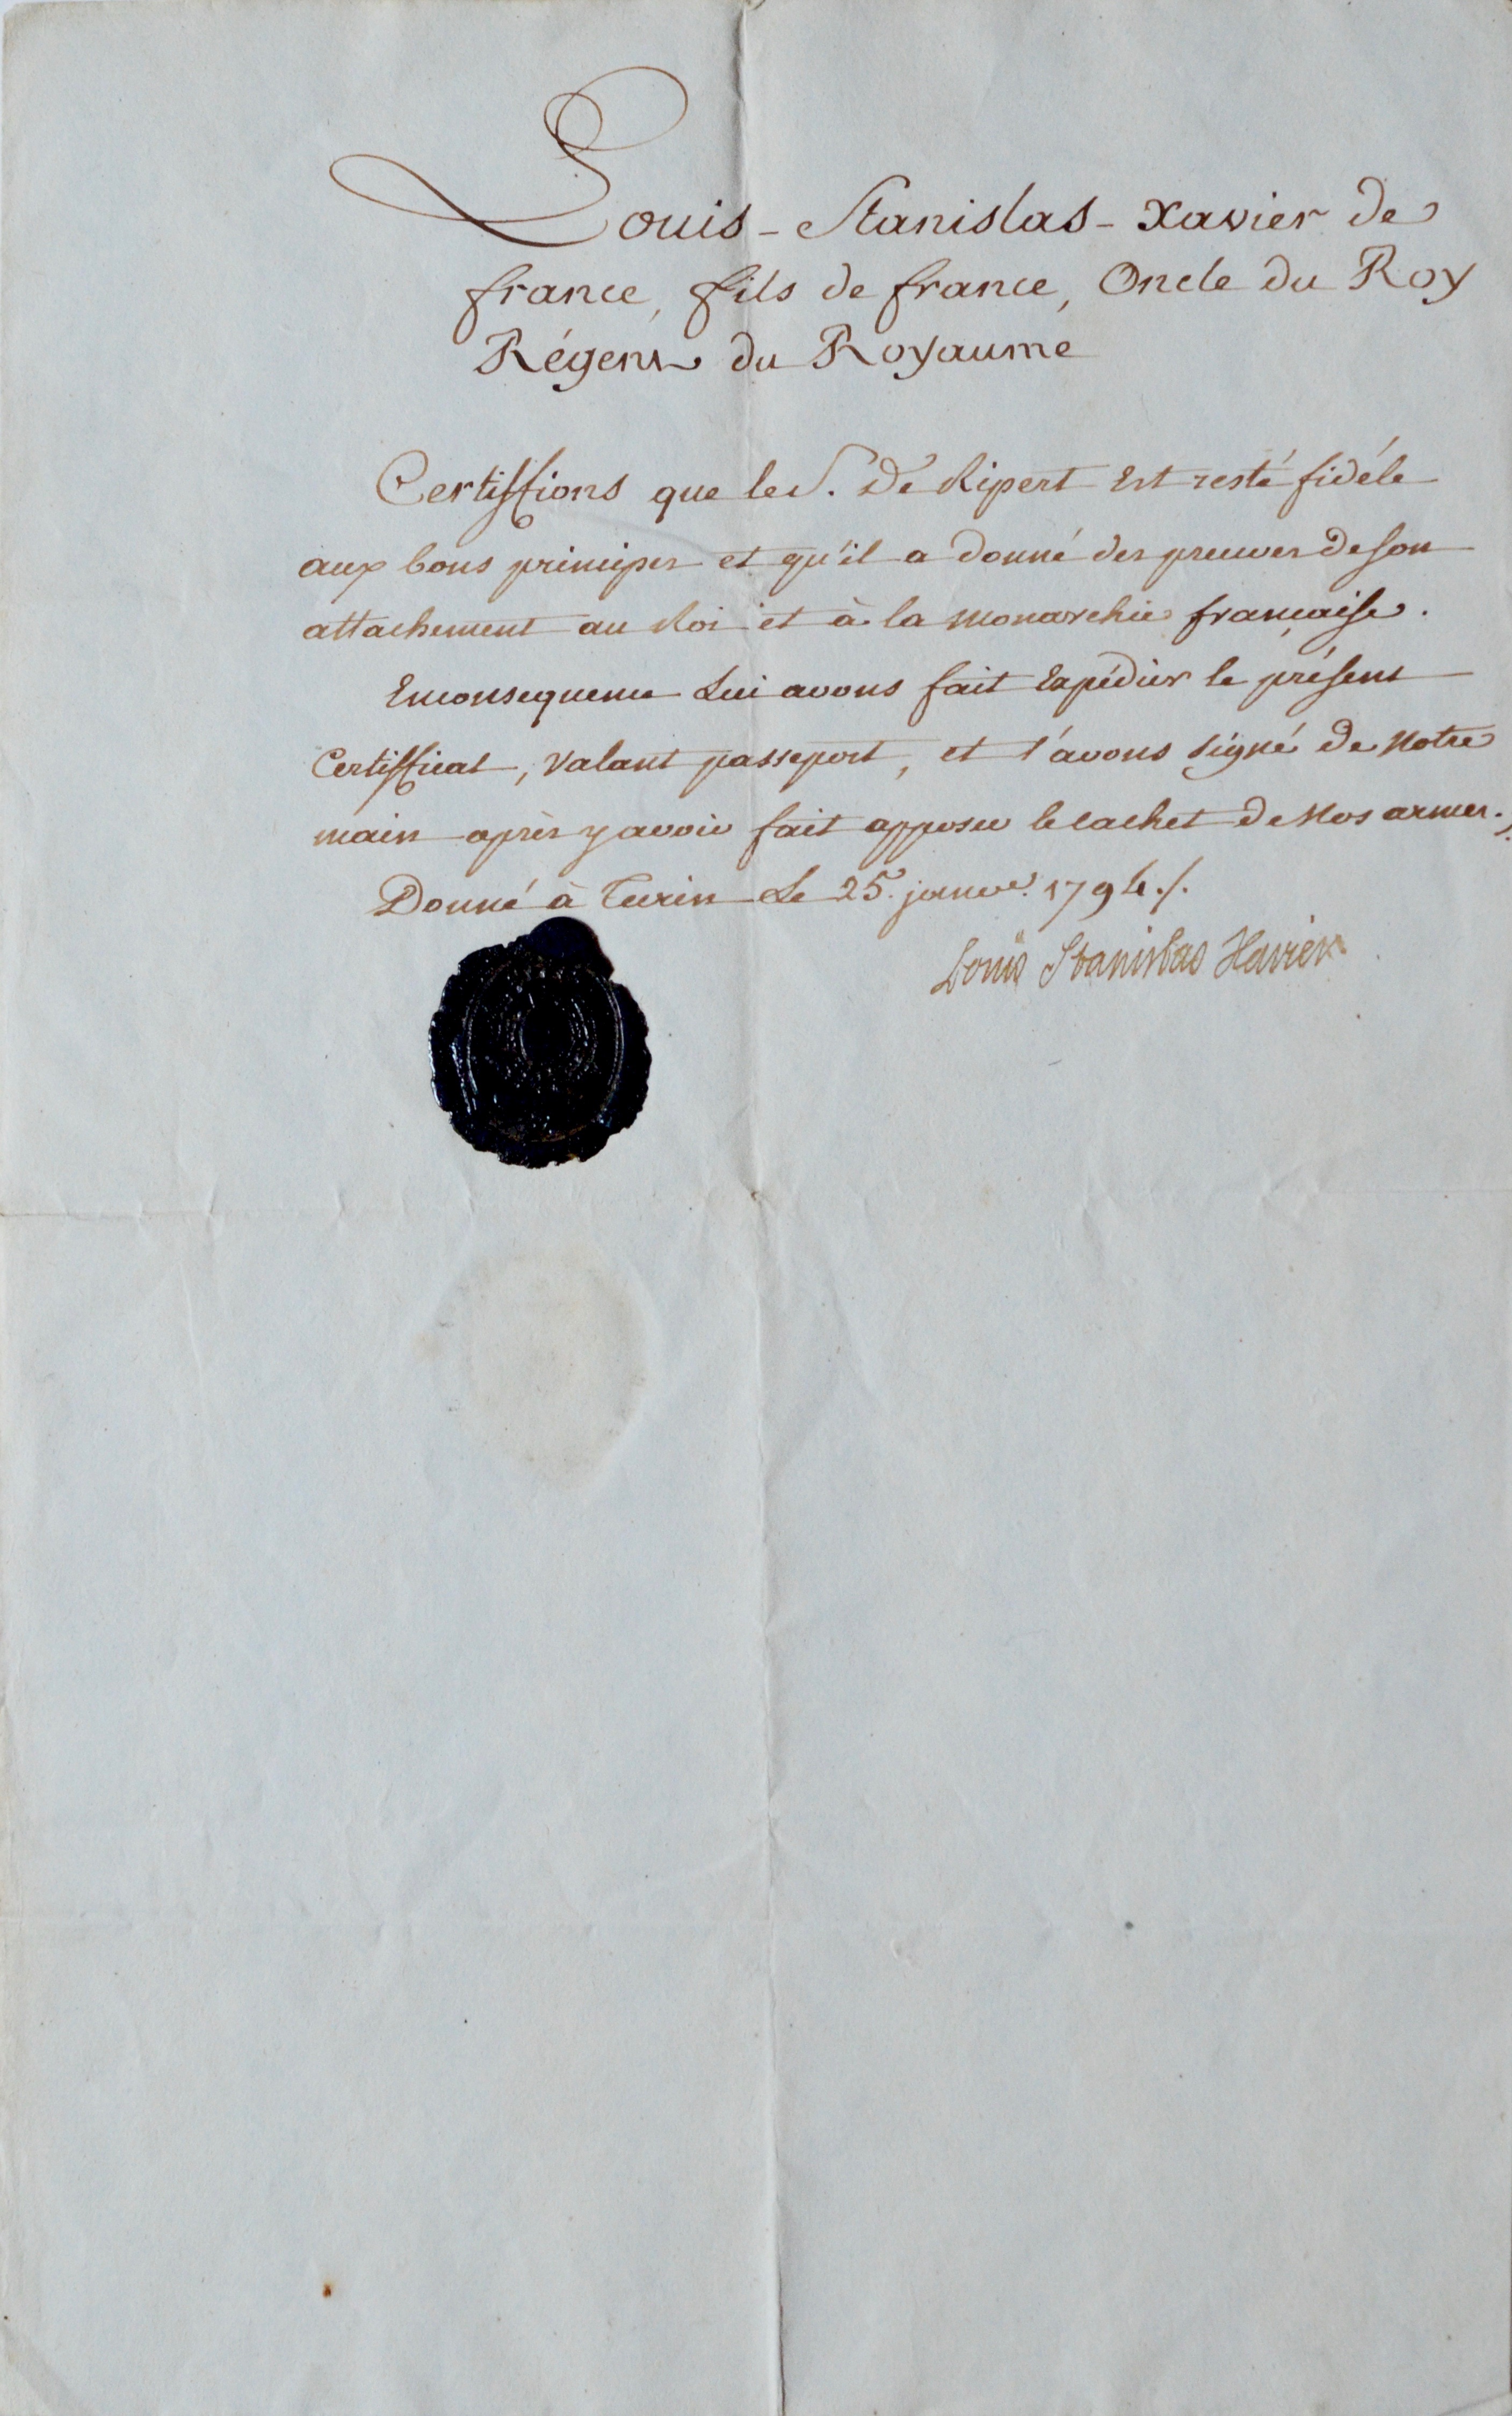 Louis - Stanislas - Xavier de
france, fils de france, Oncle du Roy
Régent du Royaume
Certiffions que le S. De Ripert Est resté fidéle
aux bons principes et qu'il a donné des preuves de son
attachement au Roi et à la Monarchie française.
En consequence Lui avons fait Expédier le présent
Certifficat, valant passeport, et l'avons signé de Notre
main après y avoir fait apposer le cachet de Nos armes./.
Donné à Turin Le 25. janver. 1794./.
Louis Stanislas Xavier